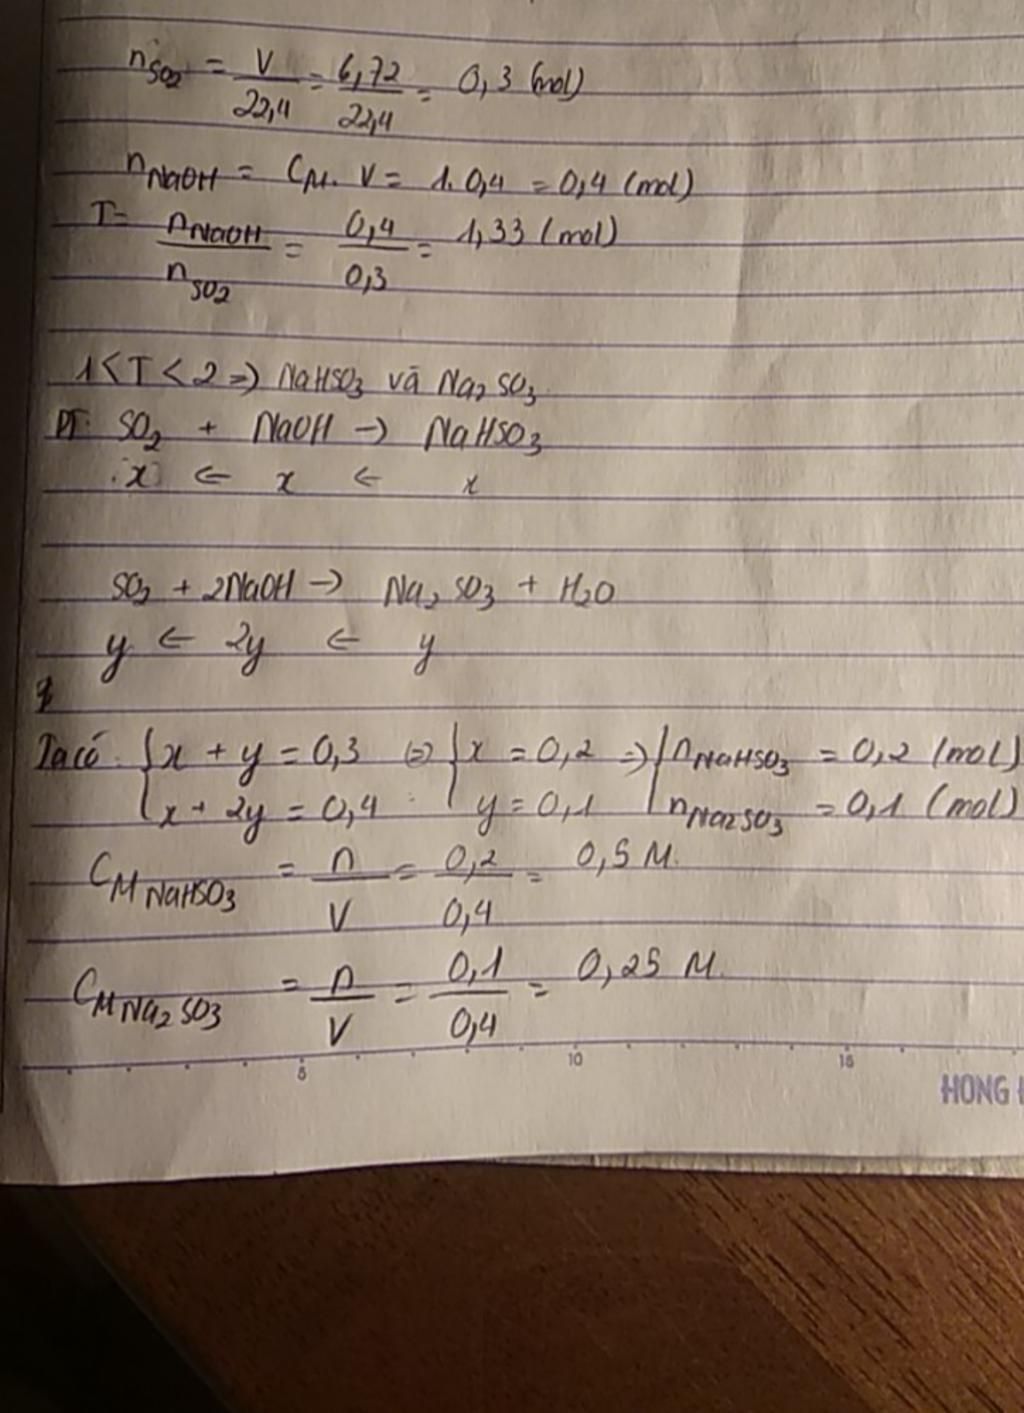 nSO2 = V/22,4 = 6,72/22,4 = 0,3 (mol)
nNaOH = CM. V = 1. 0,4 = 0,4 (mol)
T= nNaOH/nSO2 = 0,4/0,3 = 1,33 (mol)
1<T<2 => NaHSO3 và Na2SO3
PT: SO2 + NaOH -> NaHSO3
x <- x <- x
SO2 + 2NaOH -> Na2SO3 + H2O
y <- 2y <- y
Ta có: { x + y = 0,3 <=> { x = 0,2 => { nNaHSO3 = 0,2 (mol)
x + 2y = 0,4 y = 0,1 nNa2SO3 = 0,1 (mol)
CM NaHSO3 = n/V = 0,2/0,4 = 0,5 M.
CM Na2SO3 = n/V = 0,1/0,4 = 0,25 M.
5 10 15
HONG